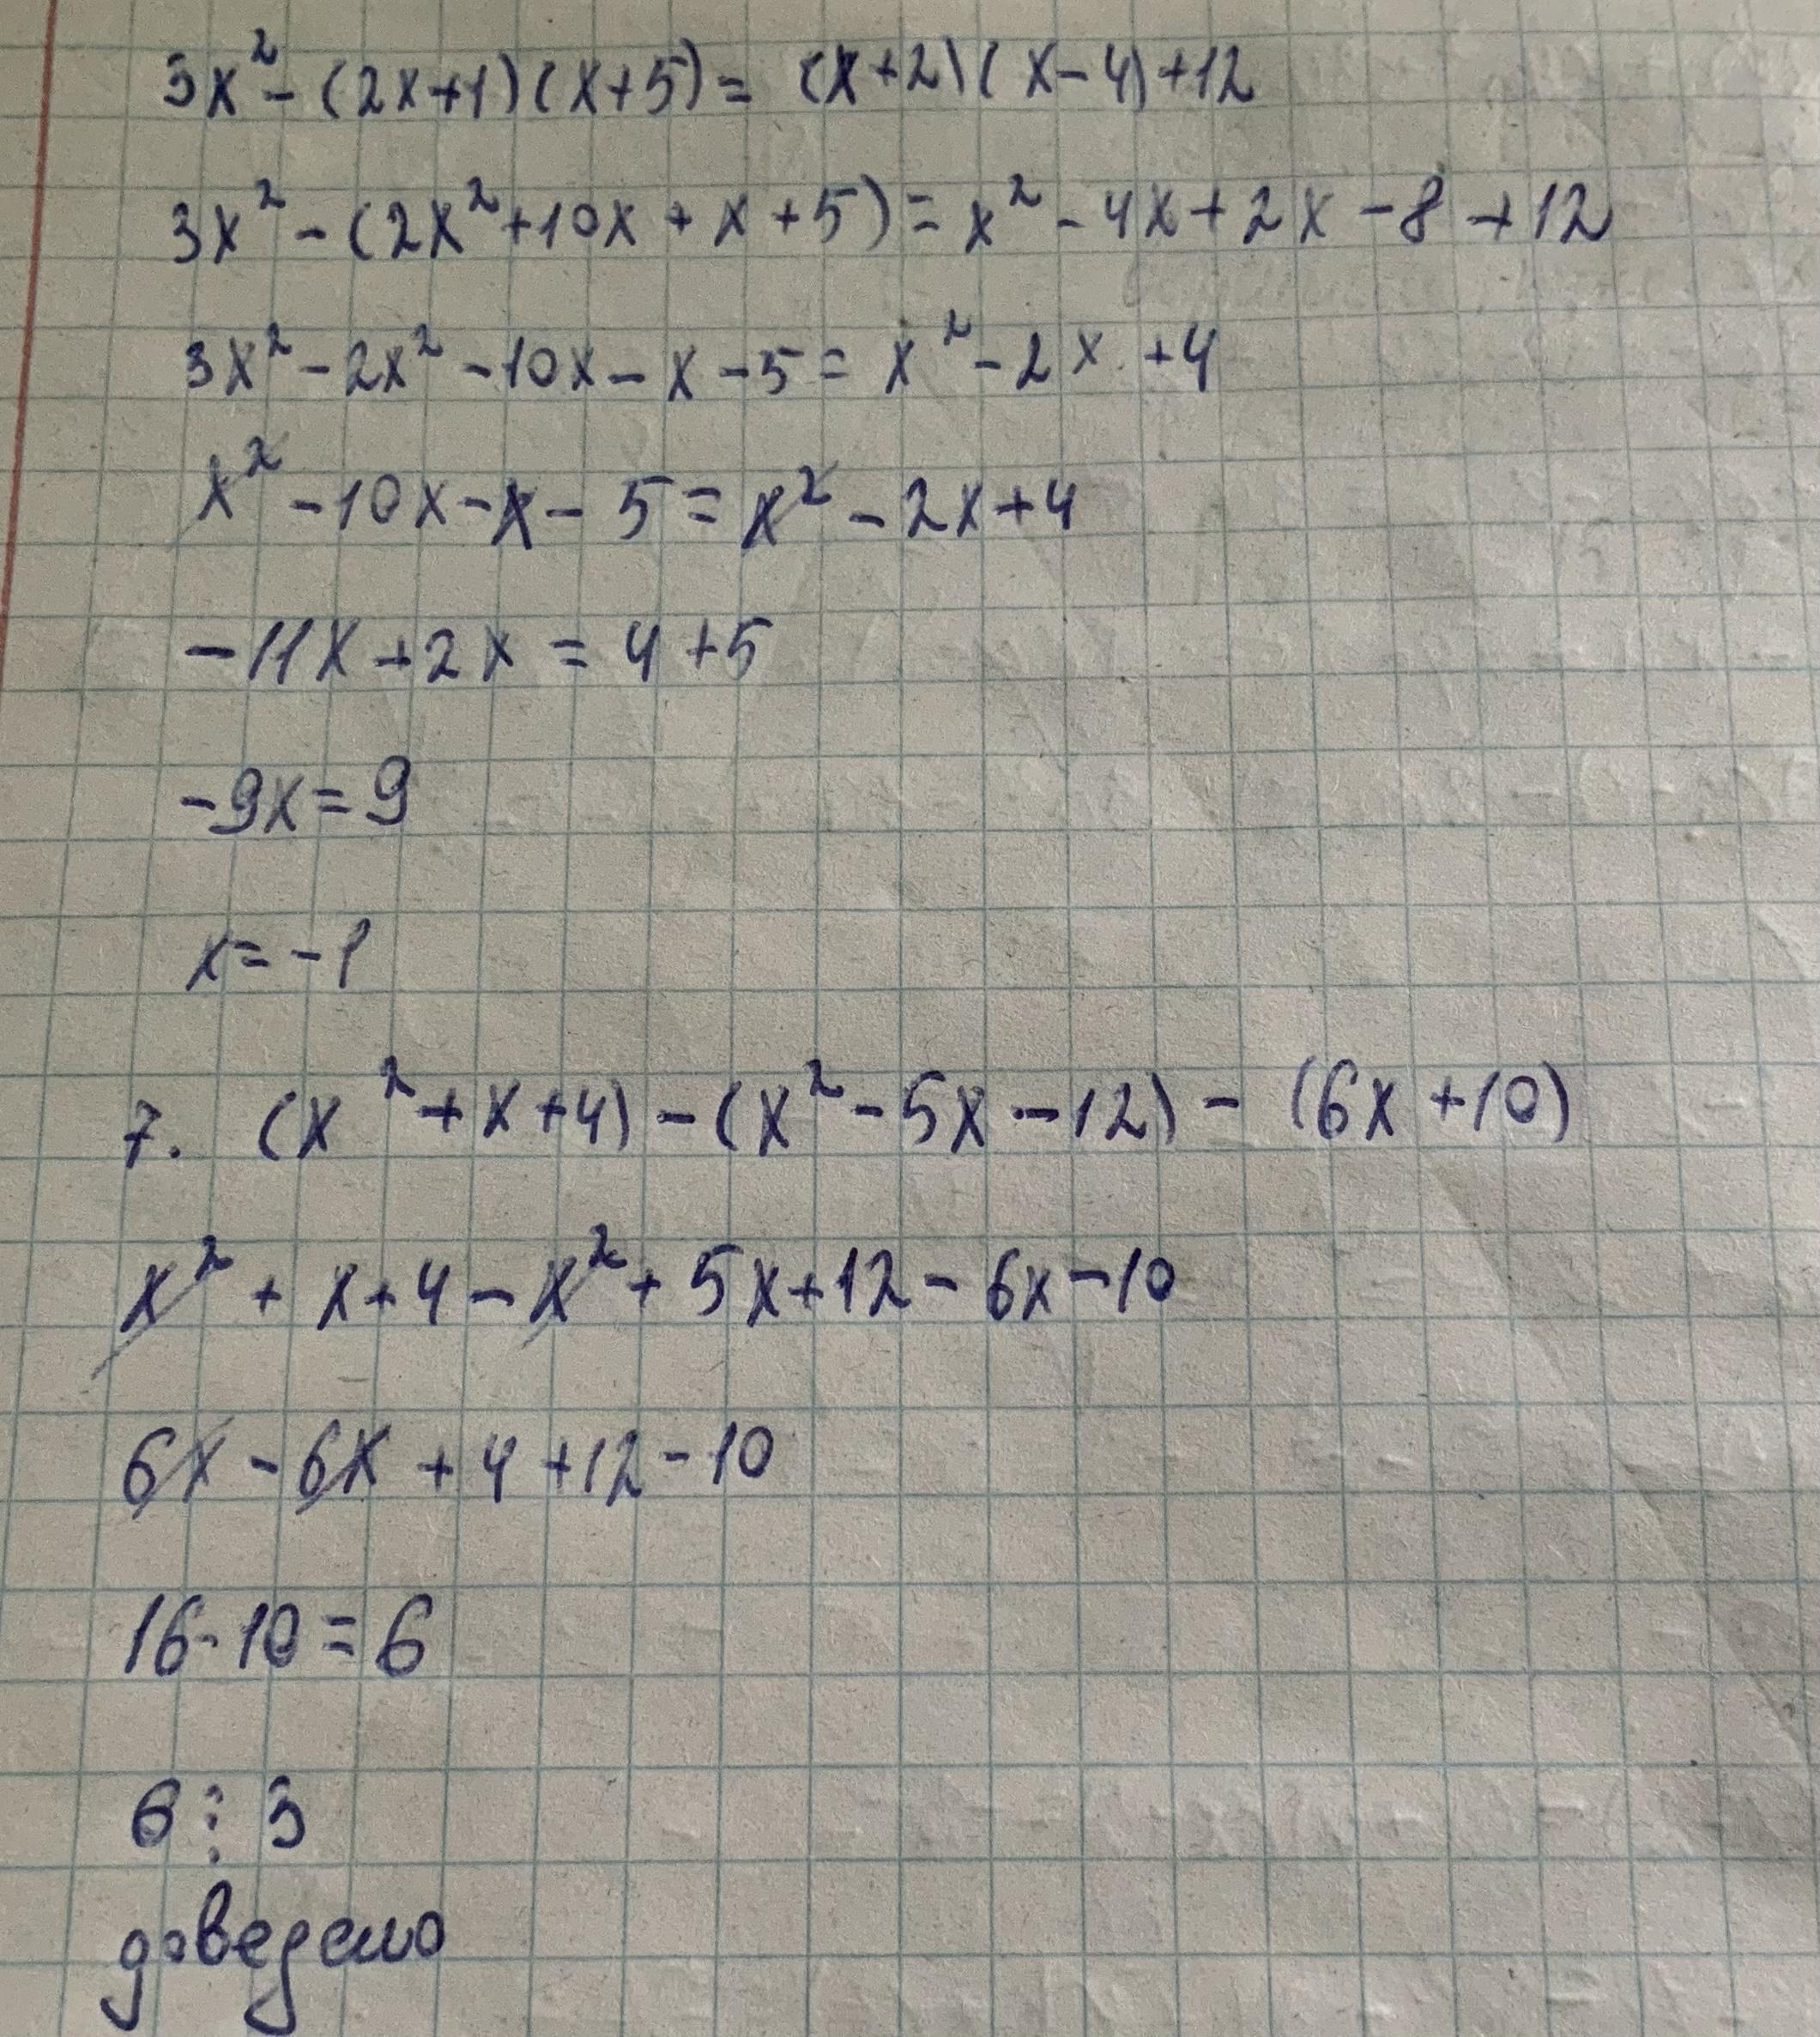 3x² - (2x+1)(x+5) = (x+2)(x-4)+12
3x² - (2x² + 10x + x + 5) = x² - 4x + 2x - 8 + 12
3x² - 2x² - 10x - x - 5 = x² - 2x + 4
x² - 10x - x - 5 = x² - 2x + 4
-11x + 2x = 4 + 5
-9x = 9
x = -1
7. (x² + x + 4) - (x² - 5x - 12) - (6x + 10)
x² + x + 4 - x² + 5x + 12 - 6x - 10
6x - 6x + 4 + 12 - 10
16 - 10 = 6
6 ⋮ 3
доведено